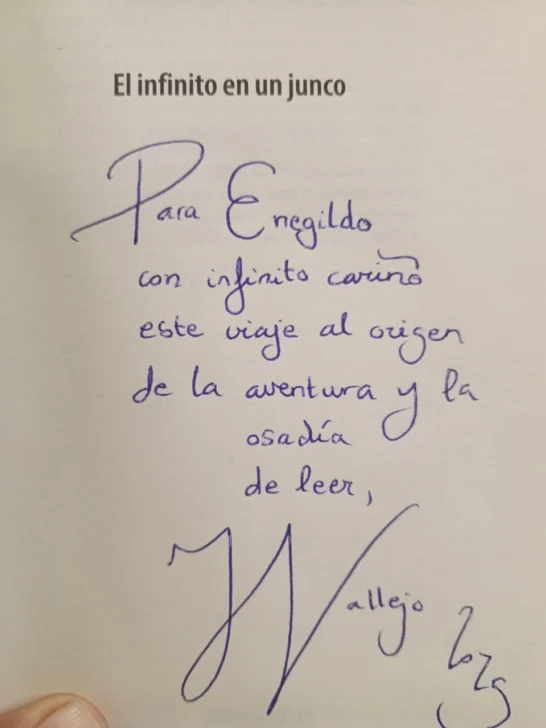 El infinito en un junco
Para Enegildo
con infinito cariño
este viaje al origen
de la aventura y la
osadía
de leer,
Vallejo